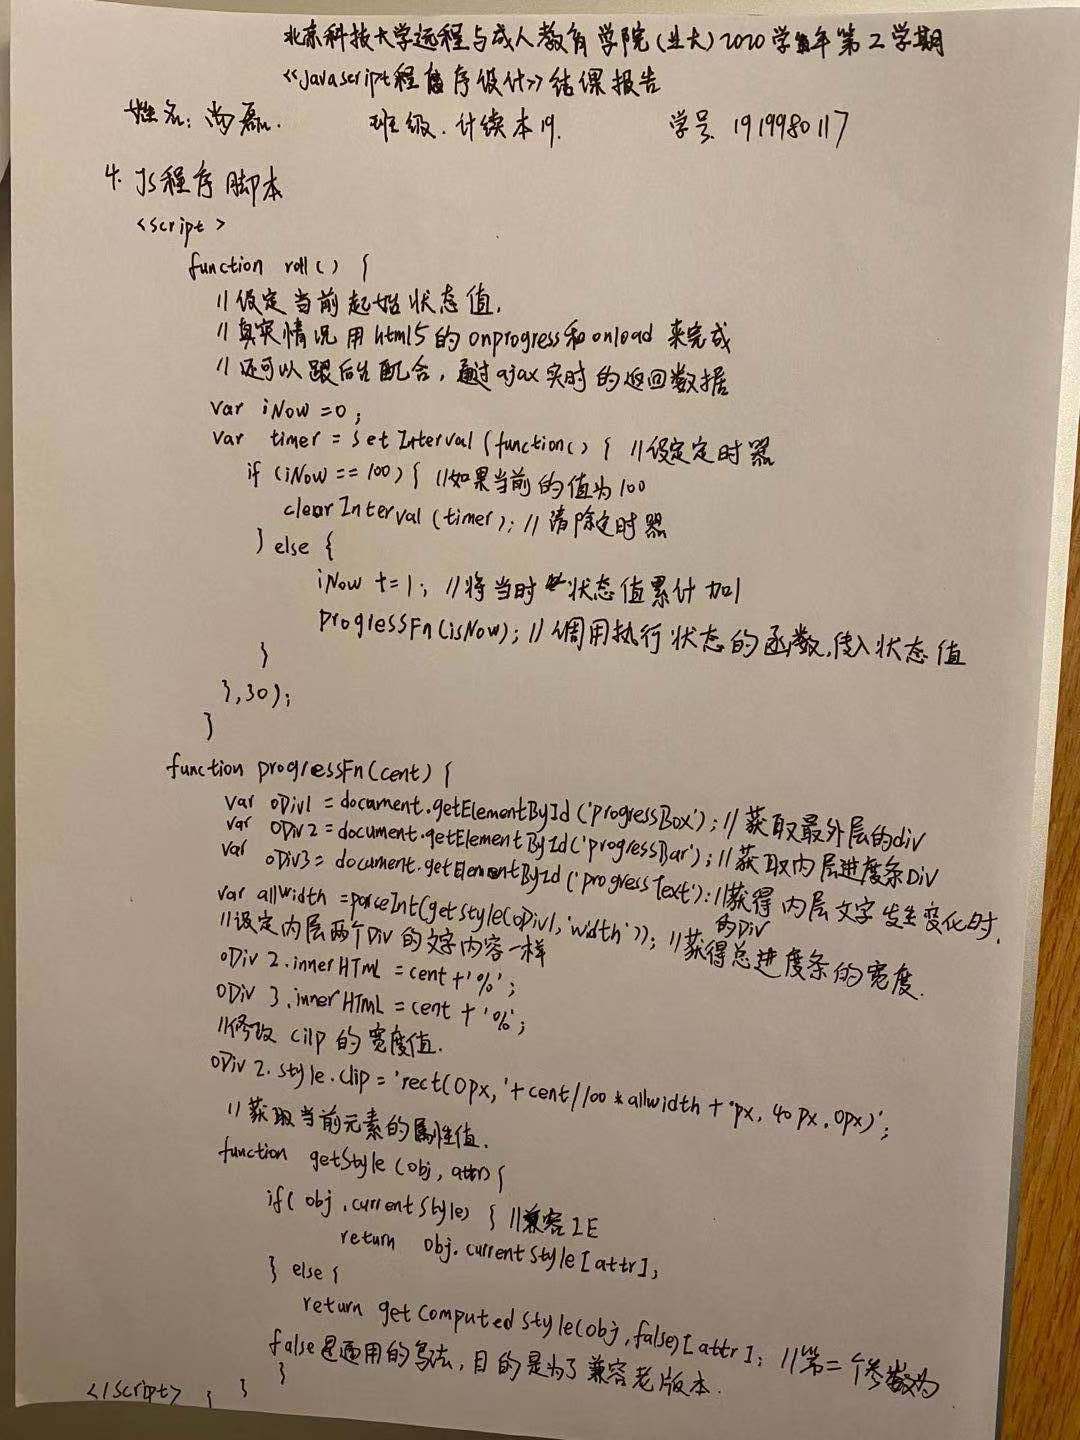 北京科技大学远程与成人教育学院(业大)2020学年第2学期
《Javascript程序设计》结课报告
姓名:尚磊. 班级.计续本19. 学号 1919980117
4. JS程序脚本
<script>
function roll() {
//假定当前起始状态值,
//真实情况用html5的onprogress和onload来完成
//还可以跟后台配合,通过ajax实时的返回数据
var iNow =0;
var timer = setInterval(function() { //设定定时器
if (iNow == 100) { //如果当前的值为100
clearInterval(timer); //清除定时器
} else {
iNow +=1; //将当时状态值累计加1
progressFn(isNow); //调用执行状态的函数,传入状态值
}
},30);
}
function progressFn(cent) {
var oDiv1 = document.getElementById('progressBox'); //获取最外层的div
var oDiv2 = document.getElementById('progressBar'); //获取内层进度条Div
var oDiv3 = document.getElementById('progressText'); //获得内层文字发生变化时,的Div
var allwidth = parceInt(getstyle(oDiv1,'width')); //获得总进度条的宽度.
//设定内层两个Div的文字内容一样
oDiv 2.innerHTML = cent+'%';
oDiv 3.innerHTML = cent +'%';
//修改 cilp 的宽度值.
oDiv 2.style.clip = 'rect(0px,'+cent/100 * allwidth + 'px, 40px, 0px)';
//获取当前元素的属性值.
function getStyle (obj, attr) {
if( obj.currentStyle) { //兼容IE
return obj.currentStyle[attr];
} else {
return getComputedStyle(obj,false)[attr]; //第二个参数为
false是通用的写法,目的是为了兼容老版本.
}
</script> } }